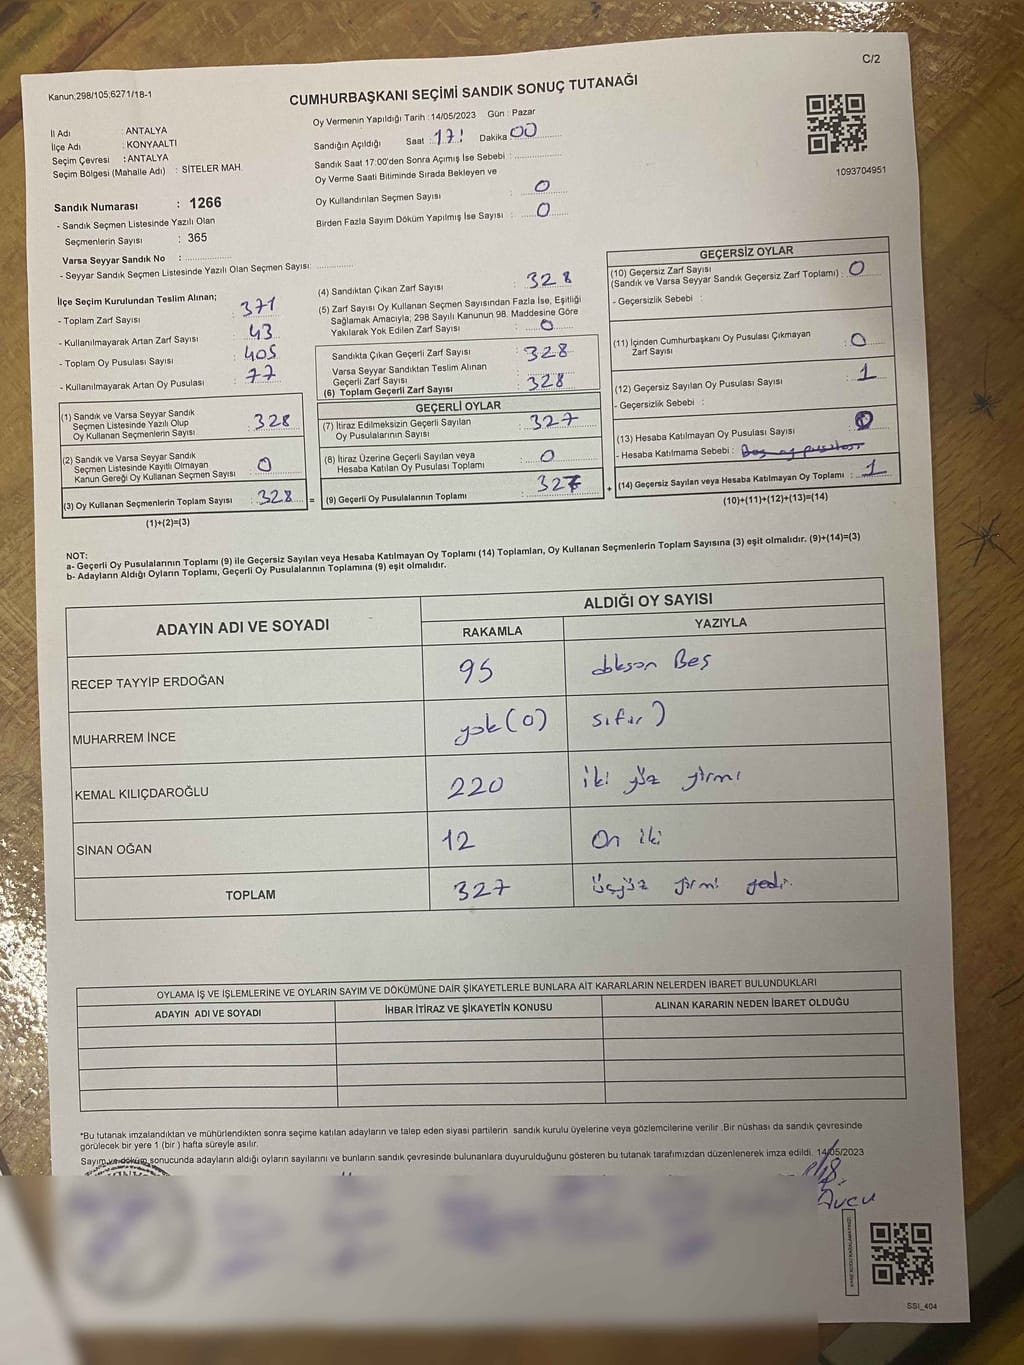 C/2
Kanun;298/105;6271/18-1
CUMHURBAŞKANI SEÇİMİ SANDIK SONUÇ TUTANAĞI
İl Adı : ANTALYA
İlçe Adı : KONYAALTI
Seçim Çevresi : ANTALYA
Seçim Bölgesi (Mahalle Adı) : SİTELER MAH.
Oy Vermenin Yapıldığı Tarih : 14/05/2023 Gün : Pazar
Sandığın Açıldığı Saat : 17: Dakika 00
Sandık Saat 17:00'den Sonra Açımış İse Sebebi :
Oy Verme Saati Bitiminde Sırada Bekleyen ve
Oy Kullandırılan Seçmen Sayısı : 0
Birden Fazla Sayım Döküm Yapılmış İse Sayısı : 0
1093704951
Sandık Numarası : 1266
- Sandık Seçmen Listesinde Yazılı Olan
Seçmenlerin Sayısı : 365
Varsa Seyyar Sandık No :
- Seyyar Sandık Seçmen Listesinde Yazılı Olan Seçmen Sayısı:
İlçe Seçim Kurulundan Teslim Alınan;
- Toplam Zarf Sayısı : 371
- Kullanılmayarak Artan Zarf Sayısı : 43
- Toplam Oy Pusulası Sayısı : 405
- Kullanılmayarak Artan Oy Pusulası : 77
(1) Sandık ve Varsa Seyyar Sandık
Seçmen Listesinde Yazılı Olup
Oy Kullanan Seçmenlerin Sayısı : 328
(2) Sandık ve Varsa Seyyar Sandık
Seçmen Listesinde Kayıtlı Olmayan
Kanun Gereği Oy Kullanan Seçmen Sayısı : 0
(3) Oy Kullanan Seçmenlerin Toplam Sayısı : 328 =
(1)+(2)=(3)
(4) Sandıktan Çıkan Zarf Sayısı : 328
(5) Zarf Sayısı Oy Kullanan Seçmen Sayısından Fazla İse, Eşitliği
Sağlamak Amacıyla; 298 Sayılı Kanunun 98. Maddesine Göre
Yakılarak Yok Edilen Zarf Sayısı : 0
Sandıkta Çıkan Geçerli Zarf Sayısı : 328
Varsa Seyyar Sandıktan Teslim Alınan
Geçerli Zarf Sayısı :
(6) Toplam Geçerli Zarf Sayısı : 328
GEÇERLİ OYLAR
(7) İtiraz Edilmeksizin Geçerli Sayılan
Oy Pusulalarının Sayısı : 327
(8) İtiraz Üzerine Geçerli Sayılan veya
Hesaba Katılan Oy Pusulası Toplamı : 0
(9) Geçerli Oy Pusulalarının Toplamı : 327 +
GEÇERSİZ OYLAR
(10) Geçersiz Zarf Sayısı
(Sandık ve Varsa Seyyar Sandık Geçersiz Zarf Toplamı) : 0
- Geçersizlik Sebebi :
(11) İçinden Cumhurbaşkanı Oy Pusulası Çıkmayan
Zarf Sayısı : 0
(12) Geçersiz Sayılan Oy Pusulası Sayısı : 1
- Geçersizlik Sebebi :
(13) Hesaba Katılmayan Oy Pusulası Sayısı : 0
- Hesaba Katılmama Sebebi : Boş oy pusulası
(14) Geçersiz Sayılan veya Hesaba Katılmayan Oy Toplamı : 1
(10)+(11)+(12)+(13)=(14)
NOT:
a- Geçerli Oy Pusulalarının Toplamı (9) ile Geçersiz Sayılan veya Hesaba Katılmayan Oy Toplamı (14) Toplamları, Oy Kullanan Seçmenlerin Toplam Sayısına (3) eşit olmalıdır. (9)+(14)=(3)
b- Adayların Aldığı Oyların Toplamı, Geçerli Oy Pusulalarının Toplamına (9) eşit olmalıdır.
ADAYIN ADI VE SOYADI
ALDIĞI OY SAYISI
RAKAMLA YAZIYLA
RECEP TAYYİP ERDOĞAN 95 doksan Beş
MUHARREM İNCE yok (0) sıfır)
KEMAL KILIÇDAROĞLU 220 iki yüz yirmi
SİNAN OĞAN 12 On iki
TOPLAM 327 üçyüz yirmi yedi.
OYLAMA İŞ VE İŞLEMLERİNE VE OYLARIN SAYIM VE DÖKÜMÜNE DAİR ŞİKAYETLERLE BUNLARA AİT KARARLARIN NELERDEN İBARET BULUNDUKLARI
ADAYIN ADI VE SOYADI İHBAR İTİRAZ VE ŞİKAYETİN KONUSU ALINAN KARARIN NEDEN İBARET OLDUĞU
*Bu tutanak imzalandıktan ve mühürlendikten sonra seçime katılan adayların ve talep eden siyasi partilerin sandık kurulu üyelerine veya gözlemcilerine verilir .Bir nüshası da sandık çevresinde
görülecek bir yere 1 (bir ) hafta süreyle asılır.
Sayım ve döküm sonucunda adayların aldığı oyların sayılarını ve bunların sandık çevresinde bulunanlara duyurulduğunu gösteren bu tutanak tarafımızdan düzenlenerek imza edildi. 14/05/2023
KARE KODU KARALAMAYINIZ!
SSI_404